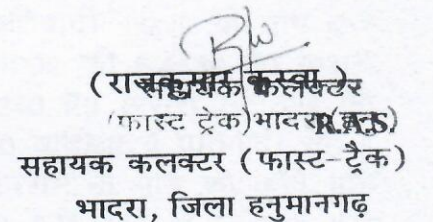 (राजकुमार कस्वा)
सहायक कलक्टर
(फास्ट ट्रेक) भादरा (हनु.)
R.A.S.
सहायक कलक्टर (फास्ट-ट्रैक)
भादरा, जिला हनुमानगढ़